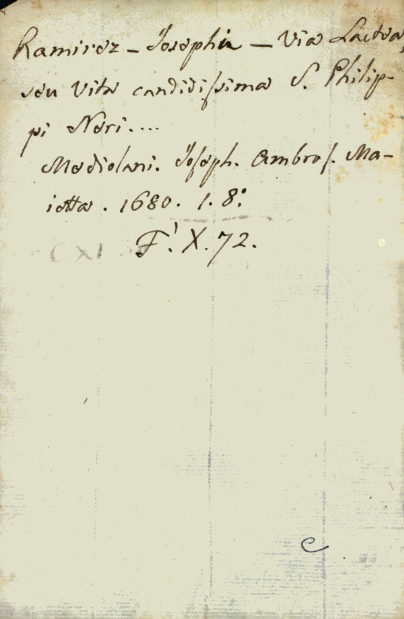 Ramirez - Josephi - Via Lactea,
seu Vita candidissima S. Philip-
pi Neri....
Mediolani. Joseph. Ambros. Ma-
ietta. 1680. 1. 8:
F. X. 72.
C